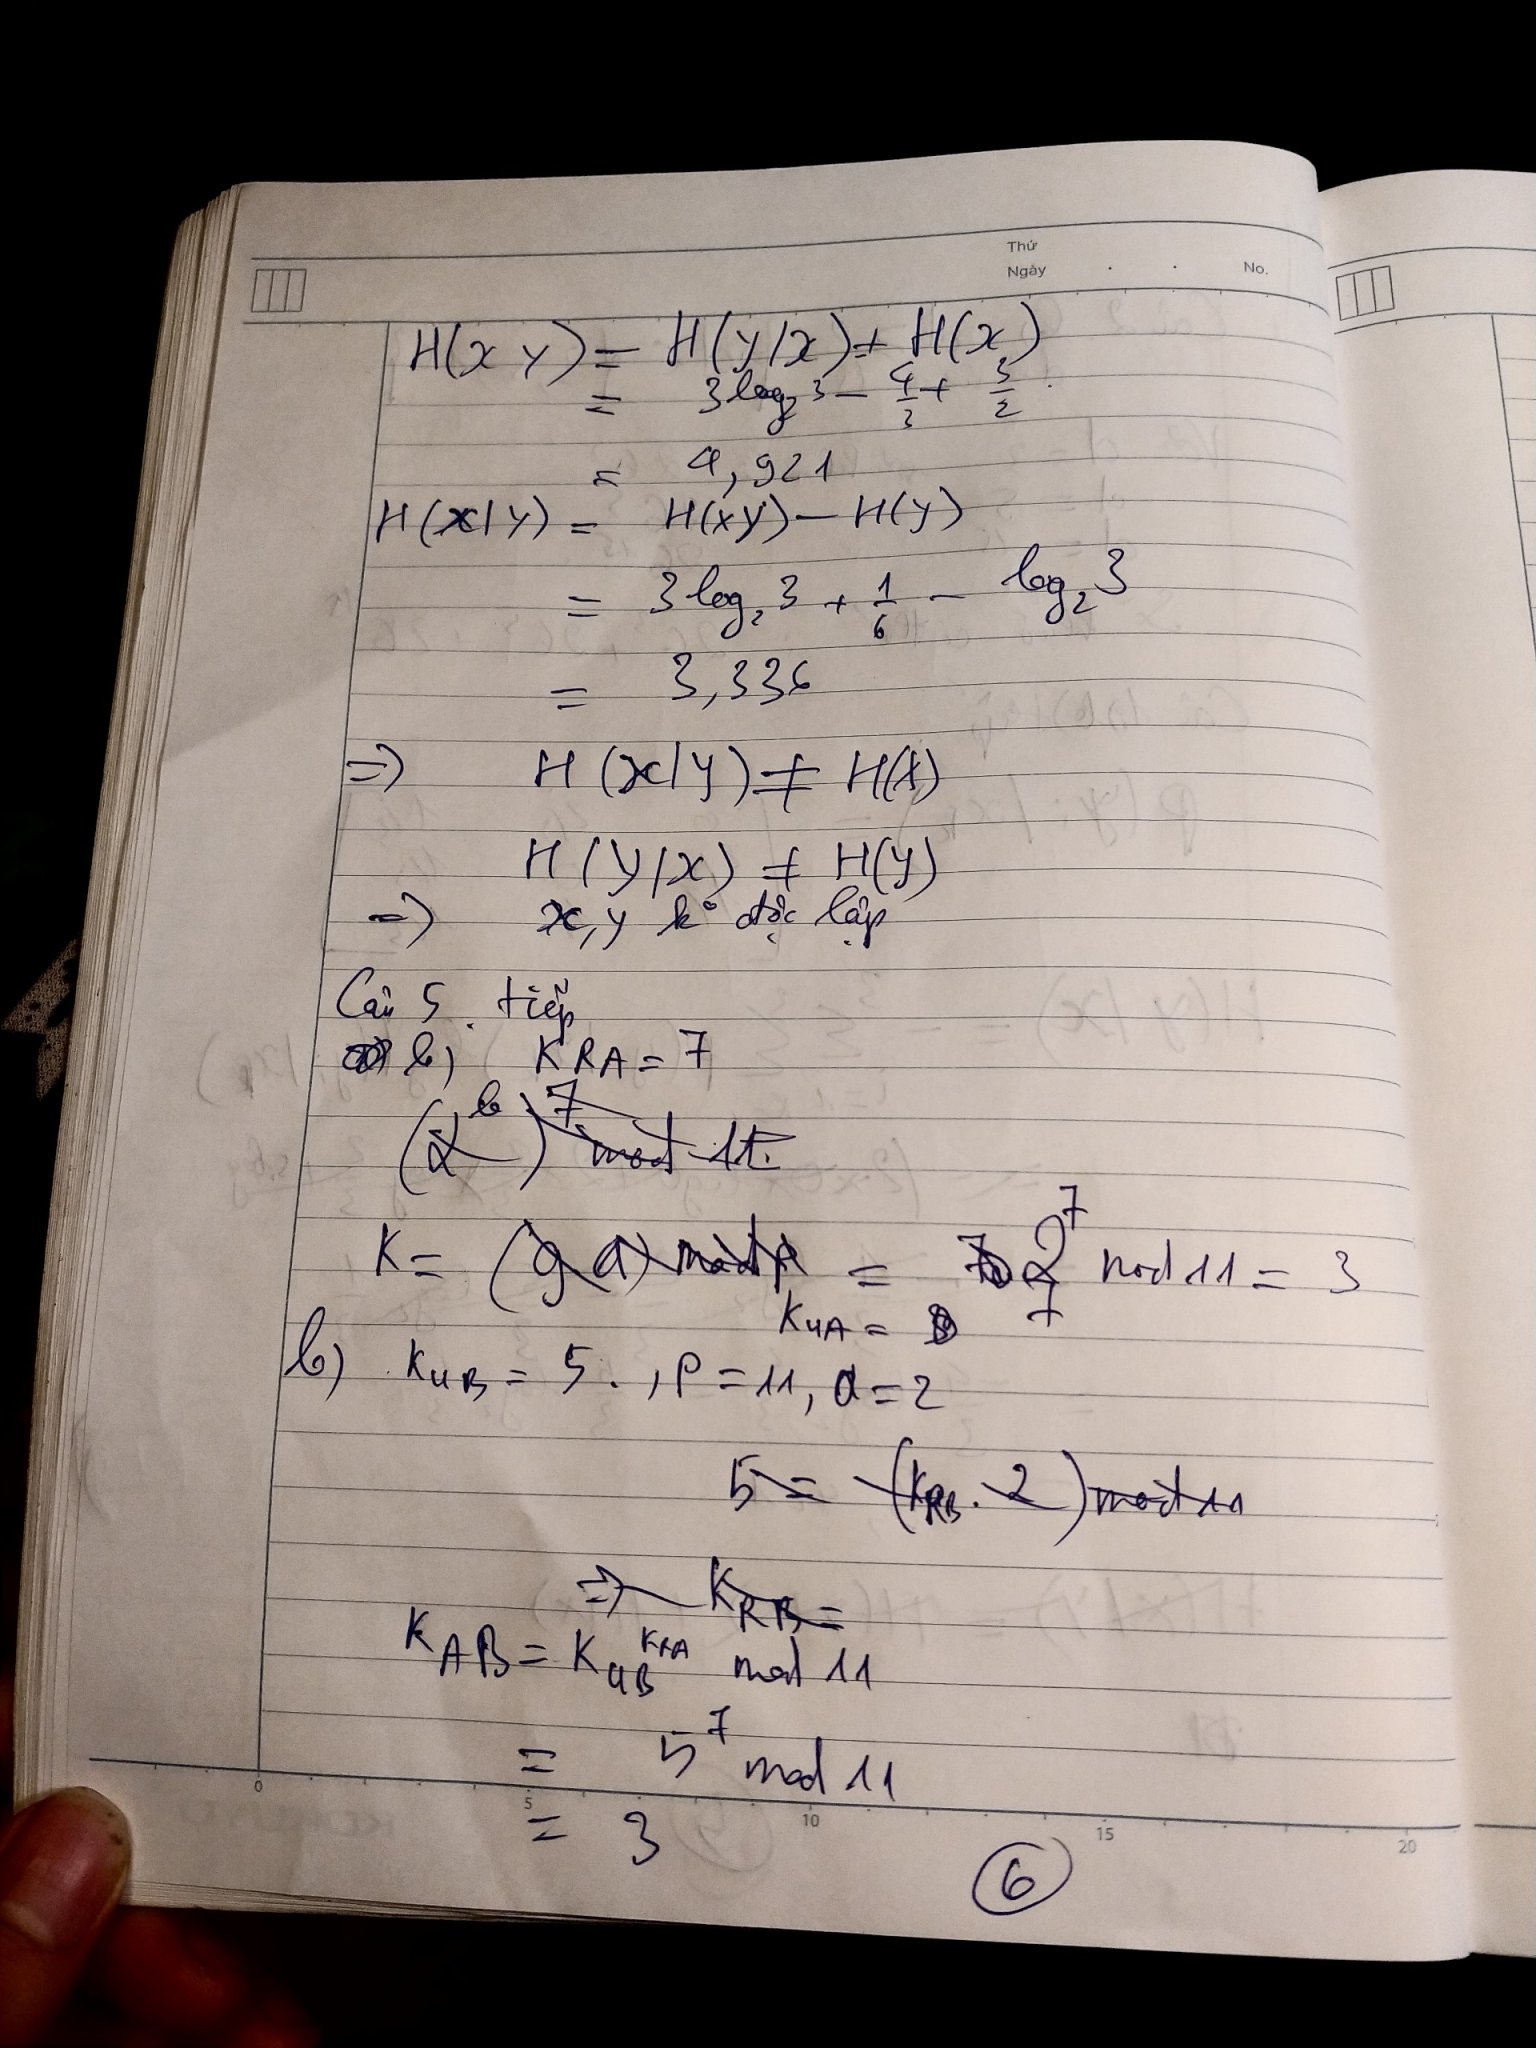 Thứ
Ngày . . No.
H(x y) = H(y/x) + H(x)
= 3log₂3 - 4/3 + 3/2
= 4,921
H(x|y) = H(xy) - H(y)
= 3log₂3 + 1/6 - log₂3
= 3,336
=> H(x|y) ≠ H(x)
H(y/x) ≠ H(y)
=> x, y k° độc lập
Câu 5. tiếp
b) KRA = 7
(2^b)^7 mod 11
K = (g a) mod p = 2^7 mod 11 = 3
KUA = 7
b) KUB = 5., P = 11, α = 2
5 = (KRB. 2) mod 11
=> KRB =
KAB = KUB^KRA mod 11
= 5^7 mod 11
= 3
0 5 10 15 20
6